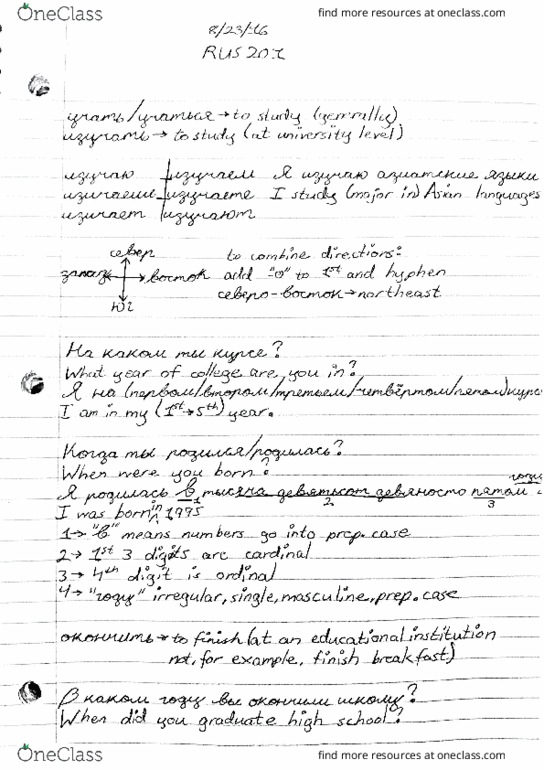 OneClass
find more resources at oneclass.com
8/23/16
RUS 201
учать/учаться → to study (generally)
изучать → to study (at university level)
изучаю изучаем Я изучаю азиатские языки
изучаешь изучаете I study (major in) Asian languages
изучает изучают
север to combine directions:
запад восток add "о" to 1st and hyphen
юг северо-восток → northeast
На каком ты курсе?
What year of college are you in?
Я на (первом/втором/третьем/четвёртом/пятом) курсе
I am in my (1st → 5th) year.
Когда ты родился/родилась?
When were you born?
году
Я родилась в тысяча девятьсот девяносто пятом
1 2 3
I was born in 1995
1 → "в" means numbers go into prep. case
2 → 1st 3 digits are cardinal
3 → 4th digit is ordinal
4 → "году" irregular, single, masculine, prep. case
окончить → to finish (at an educational institution
not, for example, finish breakfast)
В каком году вы окончили школу?
When did you graduate high school?
OneClass
find more resources at oneclass.com